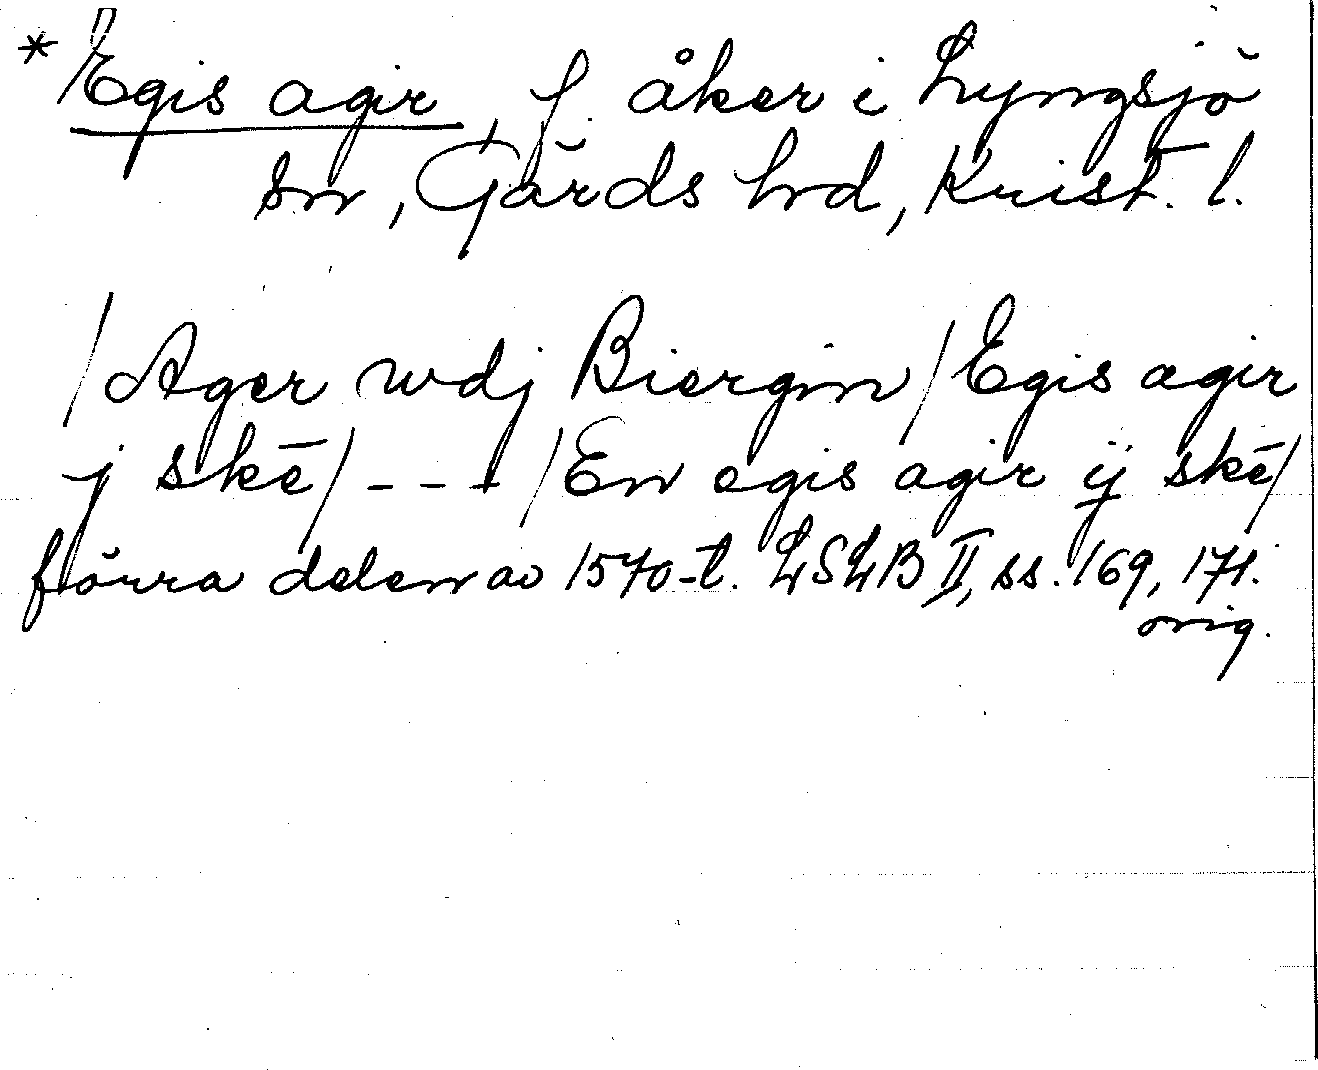 * Egis agir, f. åker i Lyngsjö
sn, Gärds hrd, Krist. l.
/Ager wdj Biergm/Egis agir
j skē/ - - - /En egis agir ij skē/
förra delen av 1570-t. LSLB II, ss. 169, 171.
orig.